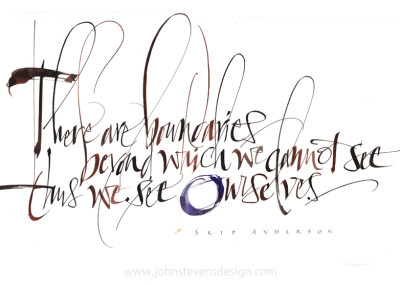 There are boundaries
beyond which we cannot see
thus we see Ourselves.
SKIP ANDERSON
www.johnstevensdesign.com